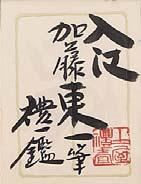 入江
加藤東一筆
禮一鑑